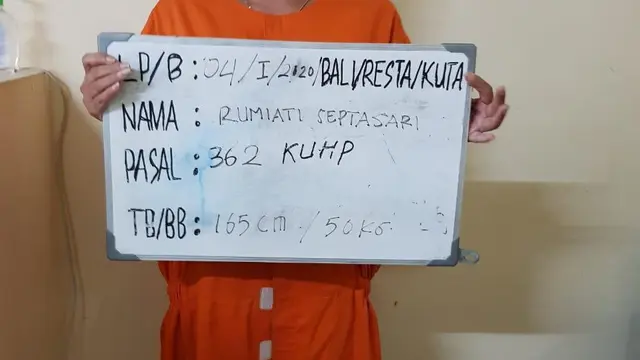 LP/B : 04/I/2020/BALI/RESTA/KUTA
NAMA : RUMIATI SEPTASARI
PASAL : 362 KUHP
TB/BB : 165 CM / 50 KG